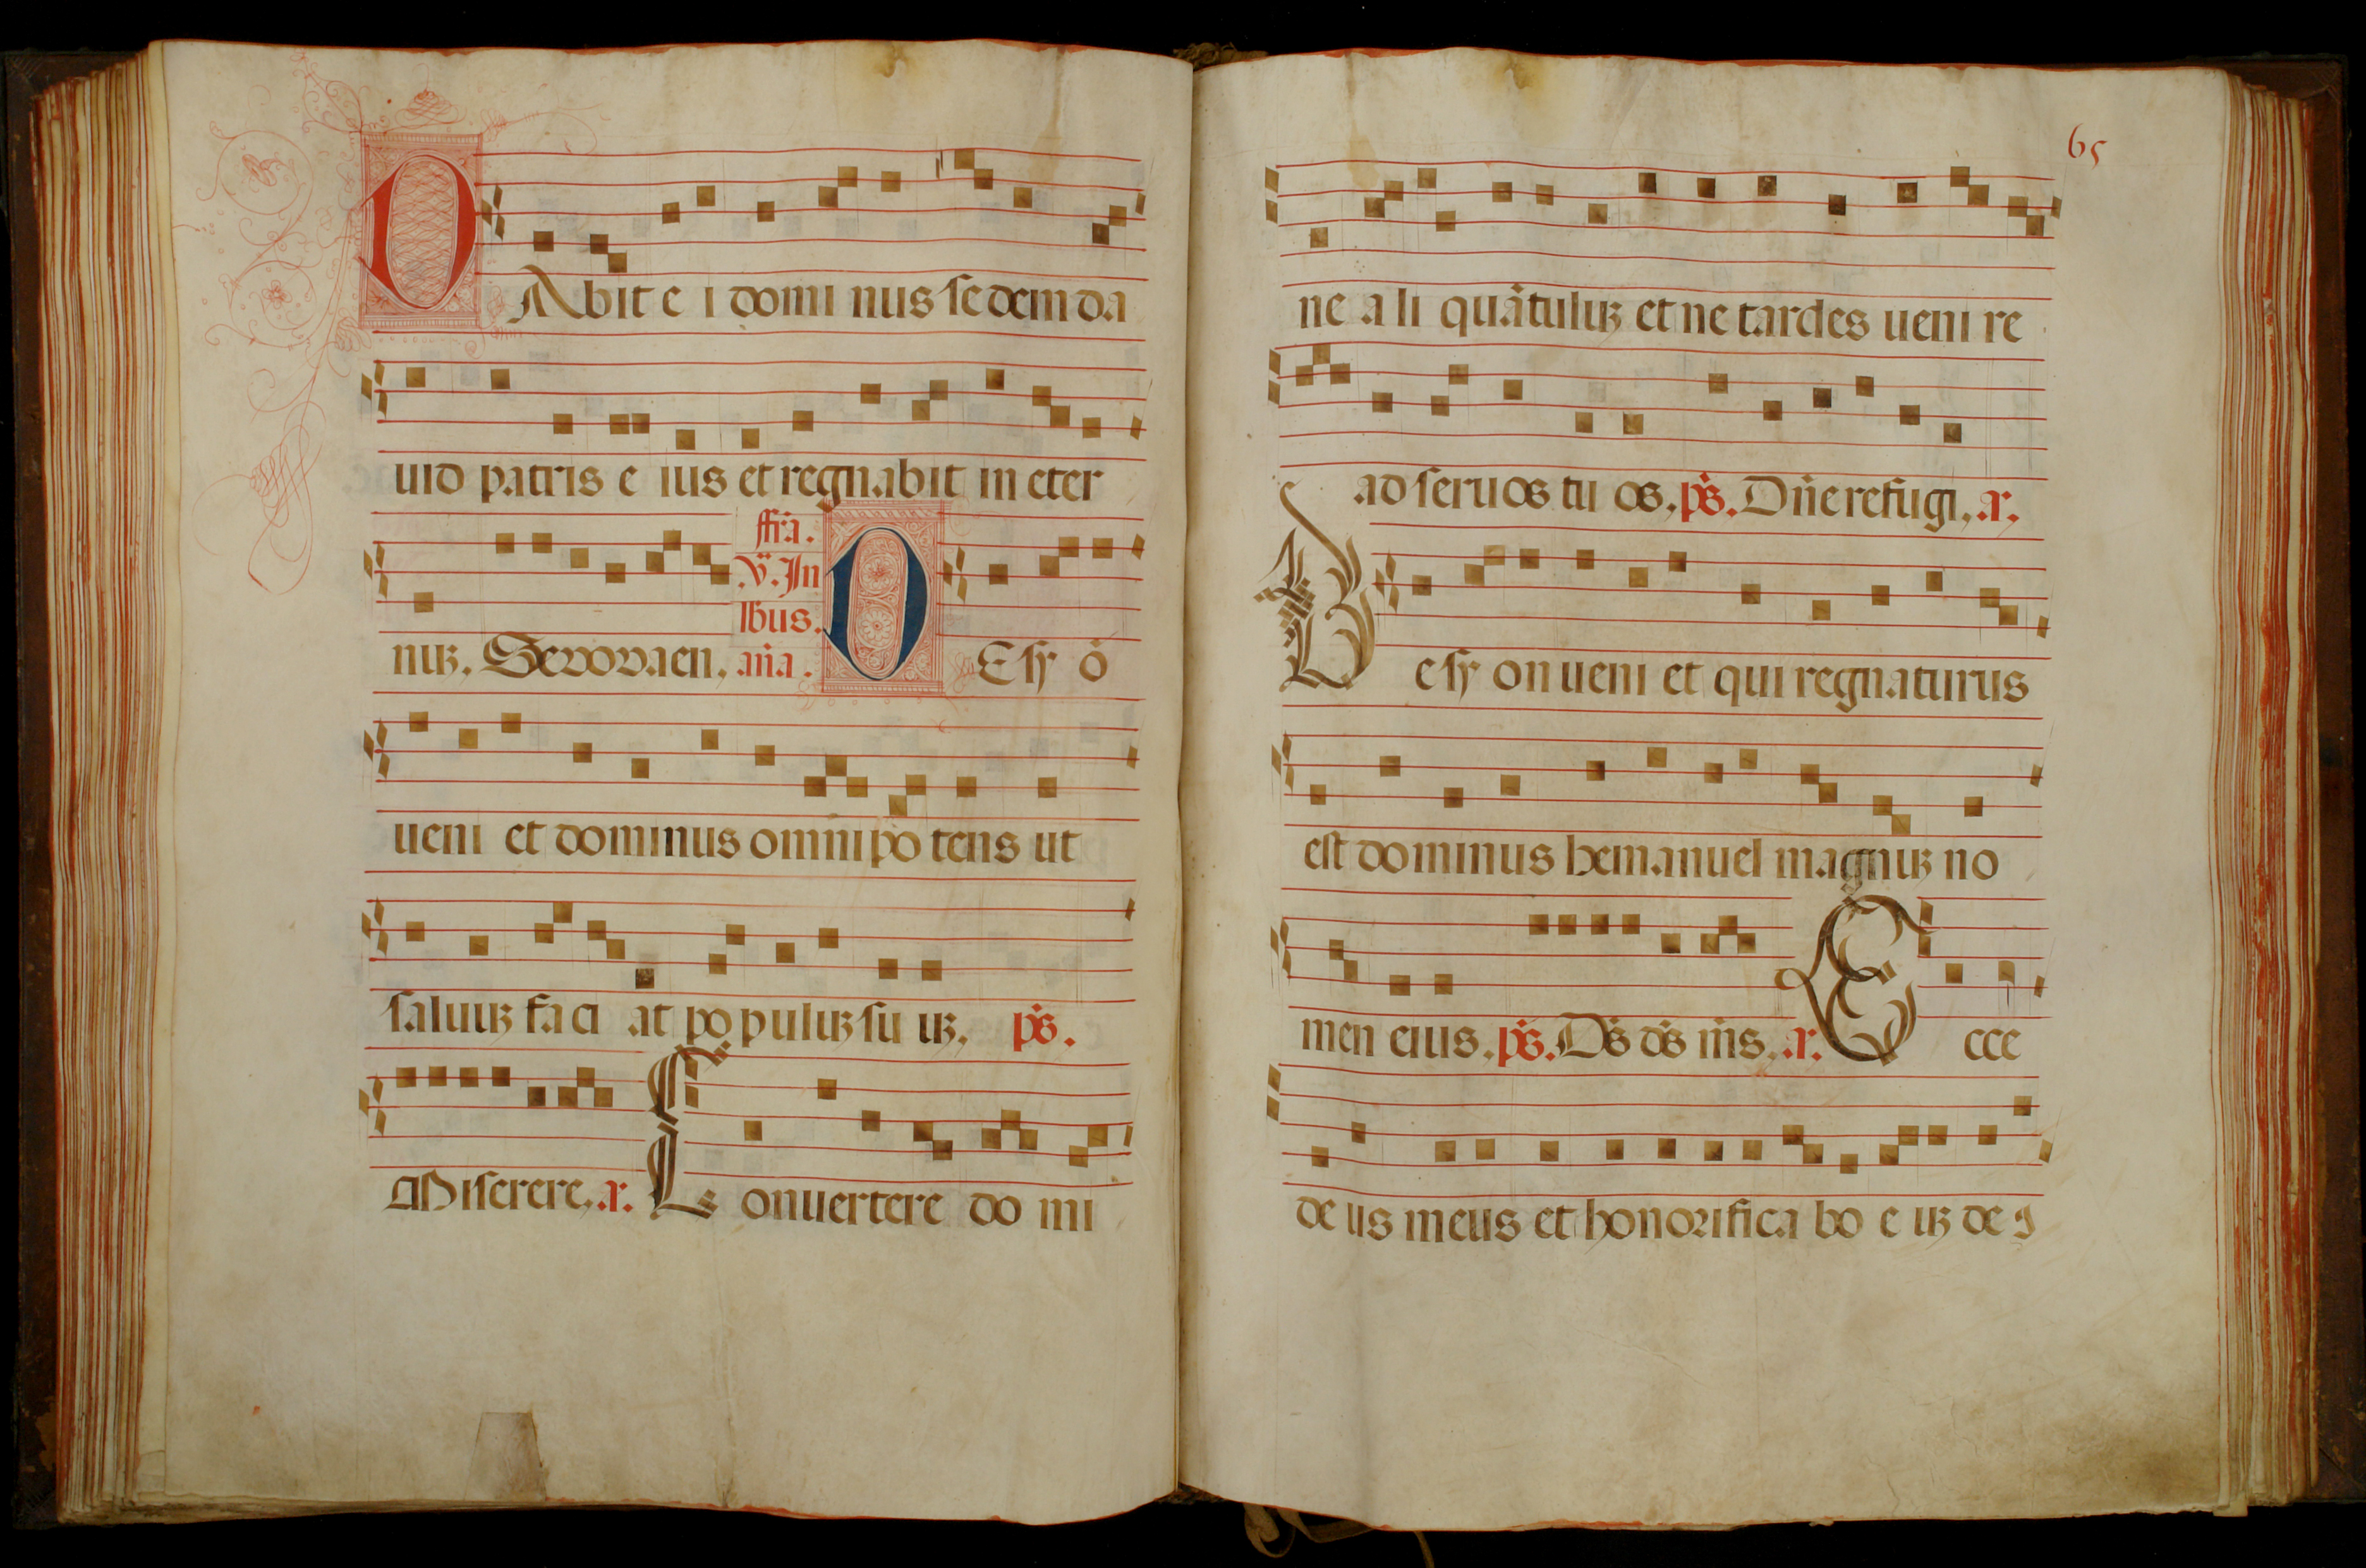 DAbit e i domi nus se dem da
uid patris e ius et regnabit in eter
ffra.
V. In
lbus.
nuʒ. Seuouaen. aña. DE sy ō
ueni et dominus omnipo tens ut
saluuʒ faci at po puluʒ su uʒ. p̄s.
Miserere. a. Conuertere do mi
65
ne a li quātuluʒ et ne tardes ueni re
ad seruos tu os. p̄s. Dñe refugi. a.
De sy on ueni et qui regnaturus
est dominus hemanuel magnuʒ no
men eius. p̄s. D̄s d̄s m̄s. a. Ecce
de us meus et honorifica bo e uʒ de ꝰ